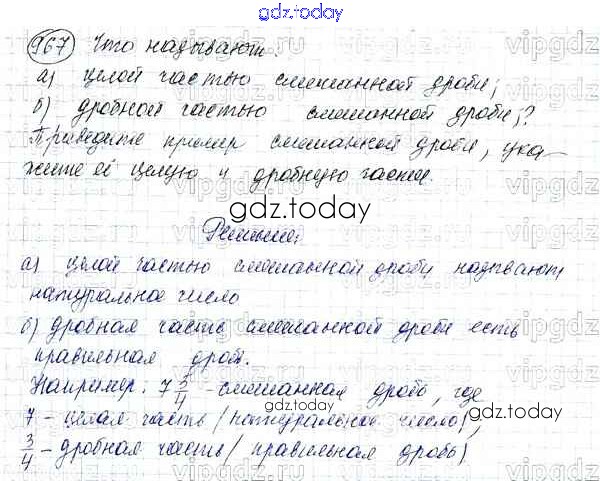 gdz.today
967 Что называют:
а) целой частью смешанной дроби;
б) дробной частью смешанной дроби;?
Приведите пример смешанной дроби, ука-
жите её целую и дробную части.
gdz.today
Решение:
а) целой частью смешанной дроби называют
натуральное число
б) дробная часть смешанной дроби есть
правильная дробь.
Например: 7 3/4 - смешанная дробь, где
7 - целая часть (натуральное число),
gdz.today
3/4 - дробная часть (правильная дробь)